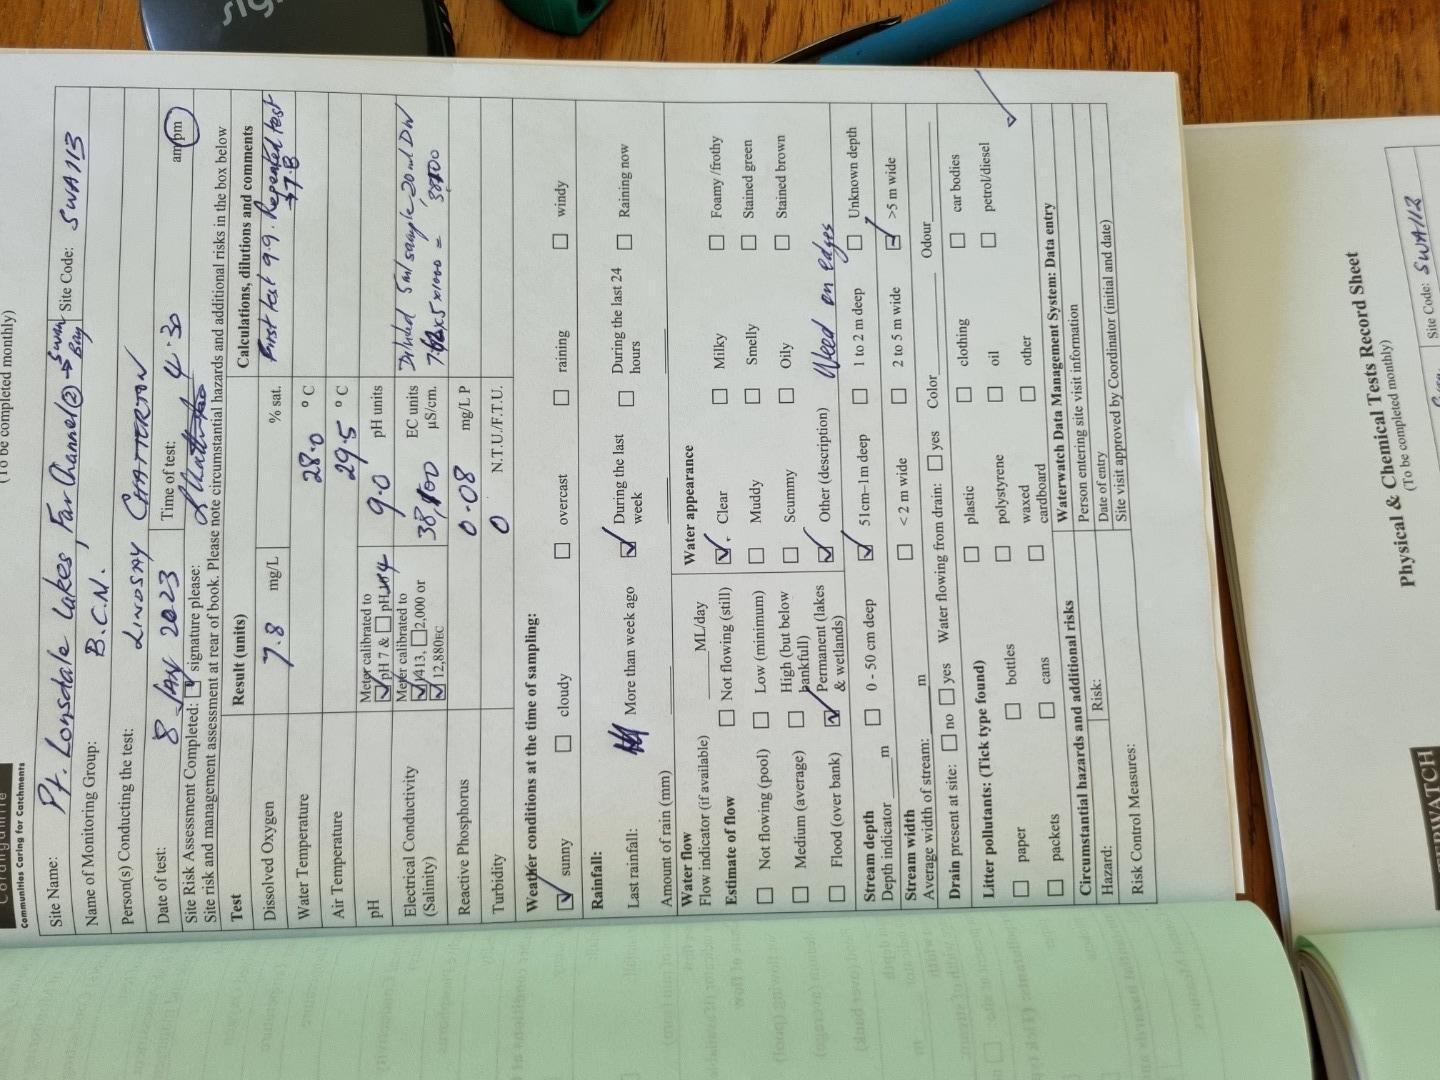 (To be completed monthly)
Corangamite
Communities Caring for Catchments
Site Name: Pt. Lonsdale Lakes, Far Channel (2) → Swan Bay Site Code: SWA113
Name of Monitoring Group: B.C.N.
Person(s) Conducting the test: LINDSAY CHATTERTON
Date of test: 8 JAN 2023 Time of test: 4.30 am/pm
Site Risk Assessment Completed: signature please:
Site risk and management assessment at rear of book. Please note circumstantial hazards and additional risks in the box below
Test Result (units) Calculations, dilutions and comments
Dissolved Oxygen 7.8 mg/L % sat. First test 9.9. Repeated test → 7.8
Water Temperature 28.0 °C
Air Temperature 29.5 °C
pH Meter calibrated to pH 7 & pH 4 9.0 pH units
Electrical Conductivity (Salinity) Meter calibrated to 1413, 2,000 or 12,880EC 38,100 EC units µS/cm. Diluted 5ml sample-20ml DW
x5x1000 =
Reactive Phosphorus 0.08 mg/L P
Turbidity 0 N.T.U./F.T.U.
Weather conditions at the time of sampling:
sunny cloudy overcast raining windy
Rainfall:
Last rainfall: More than week ago During the last week During the last 24 hours Raining now
Amount of rain (mm)
Water flow
Flow indicator (if available) ML/day
Estimate of flow
Not flowing (still)
Not flowing (pool) Low (minimum)
Medium (average) High (but below bankfull)
Flood (over bank) Permanent (lakes & wetlands)
Water appearance
Clear Milky Foamy/frothy
Muddy Smelly Stained green
Scummy Oily Stained brown
Other (description) Weed on edges
Stream depth
Depth indicator m 0 - 50 cm deep 51cm–1m deep 1 to 2 m deep Unknown depth
Stream width < 2 m wide 2 to 5 m wide >5 m wide
Average width of stream: m
Drain present at site: no yes Water flowing from drain: yes Color Odour
Litter pollutants: (Tick type found)
paper bottles plastic clothing car bodies
packets cans polystyrene oil petrol/diesel
waxed cardboard other
Circumstantial hazards and additional risks
Hazard: Risk:
Risk Control Measures:
Waterwatch Data Management System: Data entry
Person entering site visit information
Date of entry
Site visit approved by Coordinator (initial and date)
Physical & Chemical Tests Record Sheet
(To be completed monthly)
Site Code: SWA112